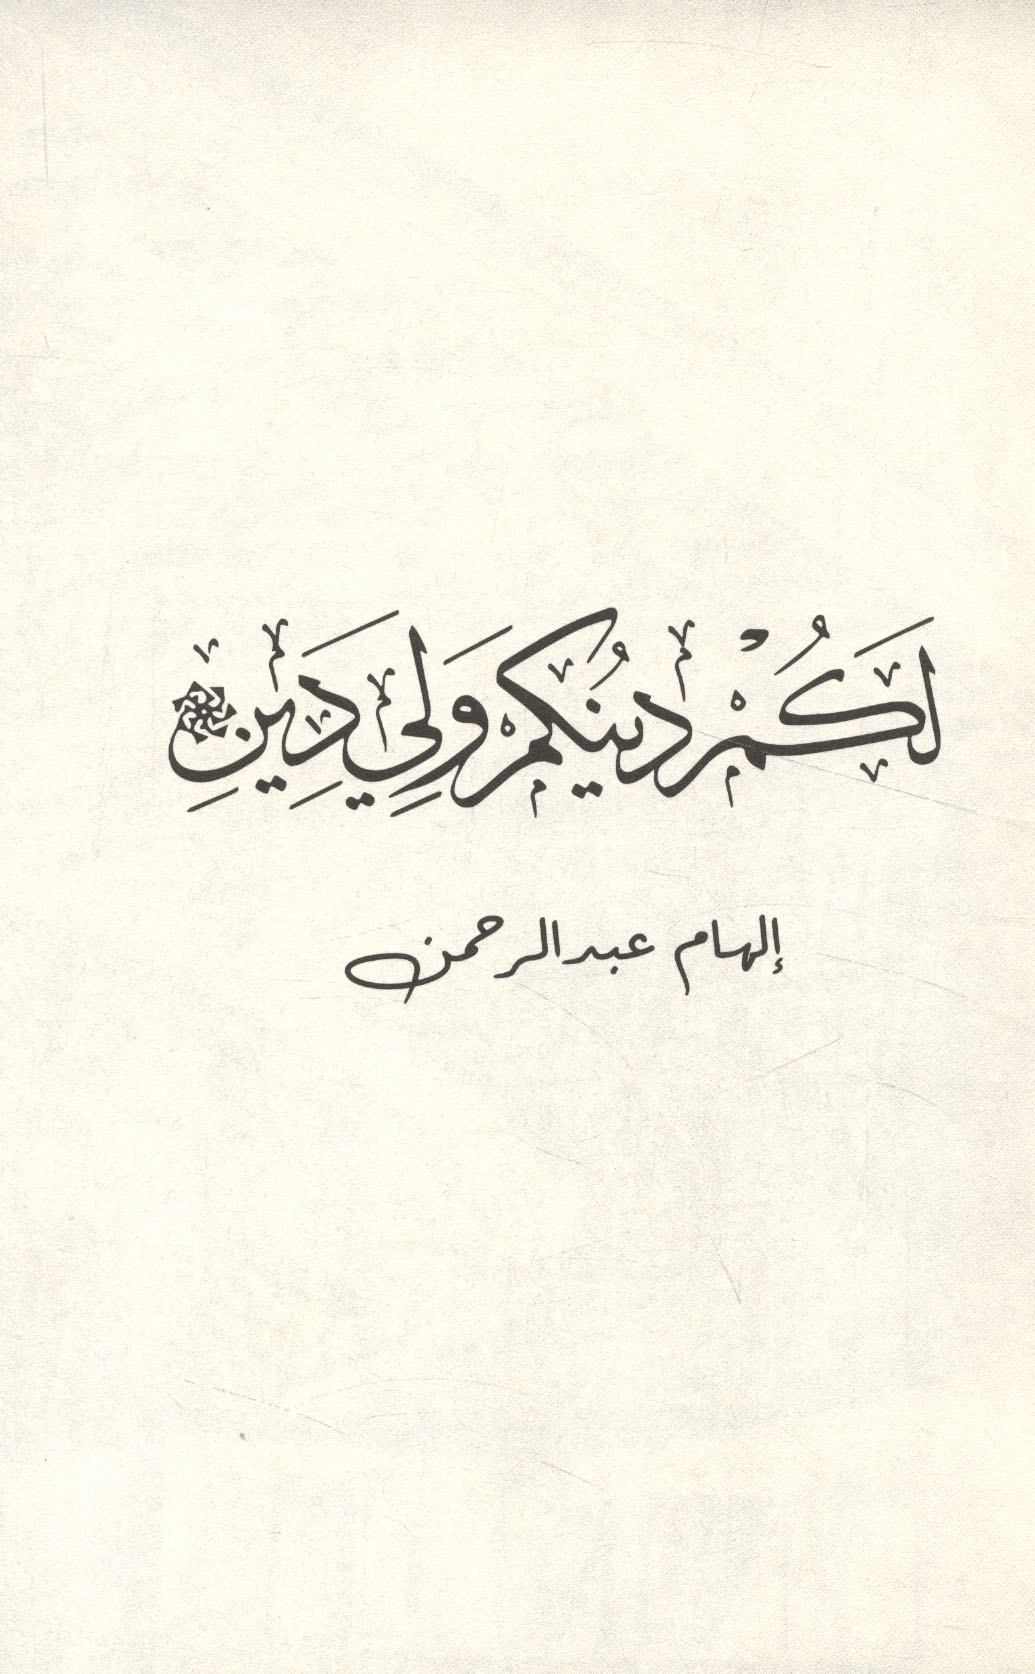 لَكُمْ دِينُكُمْ وَلِيَ دِينِ
إلهام عبدالرحمن